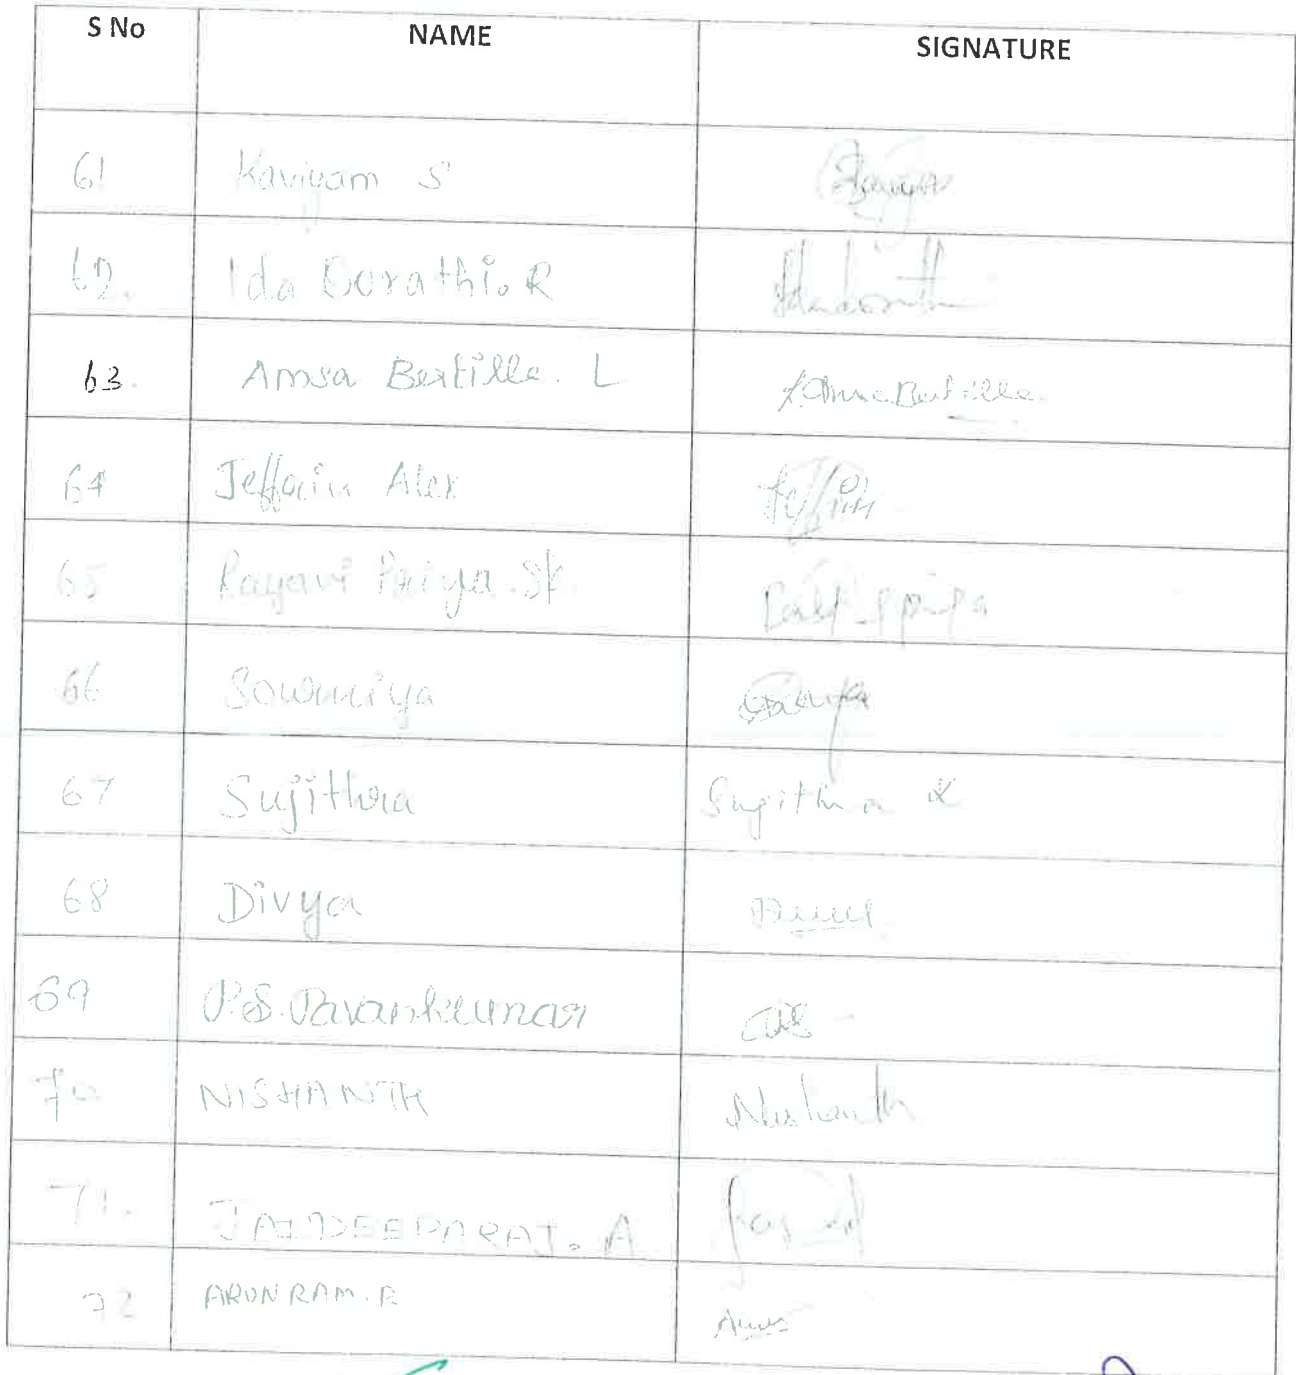 S No NAME SIGNATURE
61 Kaviyam S
62. Ida Dorathi.R
63. Amsa Bertille. L L.Amsa Bertille.
64 Jeffrin Alex Jeffrin
65 Ragavi Priya.SK
66 Sowmiya
67 Sujithra Sujithra K
68 Divya
69 P.S.Pavankumar
70 NISHANTH Nishanth
71. JAIDEEPARAJ. A
72 ARUNRAM.R Arun